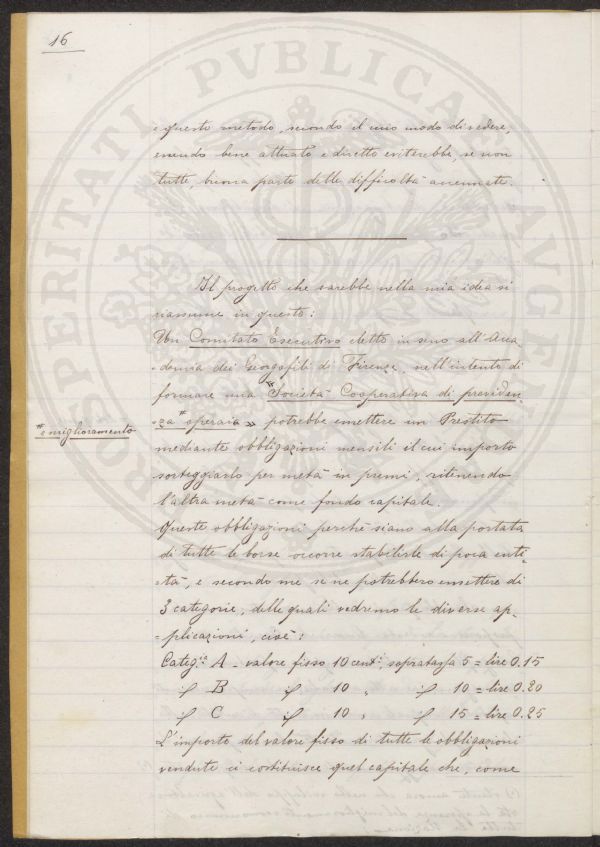 16
e questo metodo, secondo il mio modo di vedere,
essendo bene attuato e diretto eviterebbe, se non
tutte, buona parte delle difficoltà accennate.
Il progetto che sarebbe nella mia idea si
riassume in questo:
Un Comitato Esecutivo eletto in seno all'Acca-
-demia dei Georgofili di Firenze, nell'intento di
formare una "Società Cooperativa di previden-
-za # operaia" potrebbe emettere un Prestito
# e miglioramento
mediante obbligazioni mensili il cui importo
sorteggiarlo per metà in premi, ritenendo
l'altra metà come fondo capitale.
Queste obbligazioni perchè siano alla portata
di tutte le borse occorre stabilirle di poca enti-
-tà, e secondo me se ne potrebbero emettere di
3 categorie, delle quali vedremo le diverse ap-
-plicazioni, cioè:
Categ.ia A - valore fisso 10 cent.i, sopratassa 5 = lire 0.15
" B " 10 " " 10 = lire 0.20
" C " 10 " " 15 = lire 0.25
L'importo del valore fisso di tutte le obbligazioni
vendute ci costituisce quel capitale che, come
PROSPERITATI PVBLICAE AVGENDAE